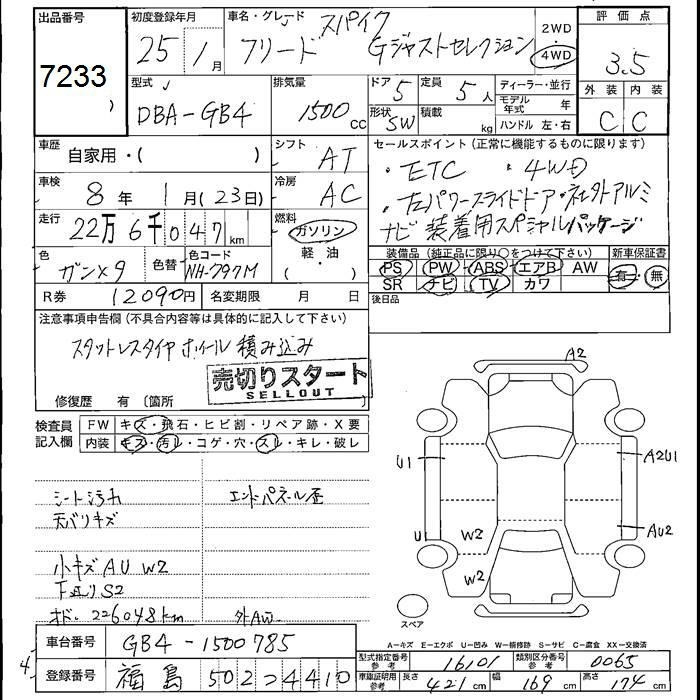 出品番号 初度登録年月 車名・グレード スパイク 2WD 評価点
7233 25 1月 フリード Gジャストセレクション 4WD 3.5
型式 排気量 ドア 5 定員 5人 ディーラー・並行 外装 内装
DBA-GB4 1500cc 形状 SW 積載 kg モデル年式 年 C C
ハンドル 左・右
車歴 自家用・( ) シフト AT セールスポイント(正常に機能するものに限ります)
車検 8年 1月(23日) 冷房 AC ・ETC ・4WD
走行 22万6千047km 燃料 ガソリン ・左パワースライドドア・ネットアルミ
軽・油 ナビ装着用スペシャルパッケージ
色 ガンメタ 色替 色コード NH-797M ( )
装備品(純正品に限り○をつけて下さい) 新車保証書
PS PW ABS エアB AW 有・無
SR ナビ TV カワ
R券 12090円 名変期限 月 日 後日品
注意事項申告欄(不具合内容等は具体的に記入して下さい)
スタットレスタイヤ ホイール積み込み
売切りスタート
SELLOUT
修復歴 有(箇所
検査員記入欄 FW キズ・飛石・ヒビ割・リペア跡・X要
内装 キズ・汚レ・コゲ・穴・スレ・キレ・破レ
シート汚れ エンドパネル歪
天バリキズ
小キズAU W2
下廻りS2
オド. 226048km 外AW
A2
U1 A2U1
U1 W2 AU2
W2
スペア
A-キズ E-エクボ U-凹み W-補修跡 S-サビ C-腐食 XX-交換済
車台番号 GB4-1500785
型式指定番号 参考 16101 類別区分番号 参考 0065
4 登録番号 福島 502 そ 4410
車庫証明用 参考 長さ 421cm 幅 169cm 高さ 174cm